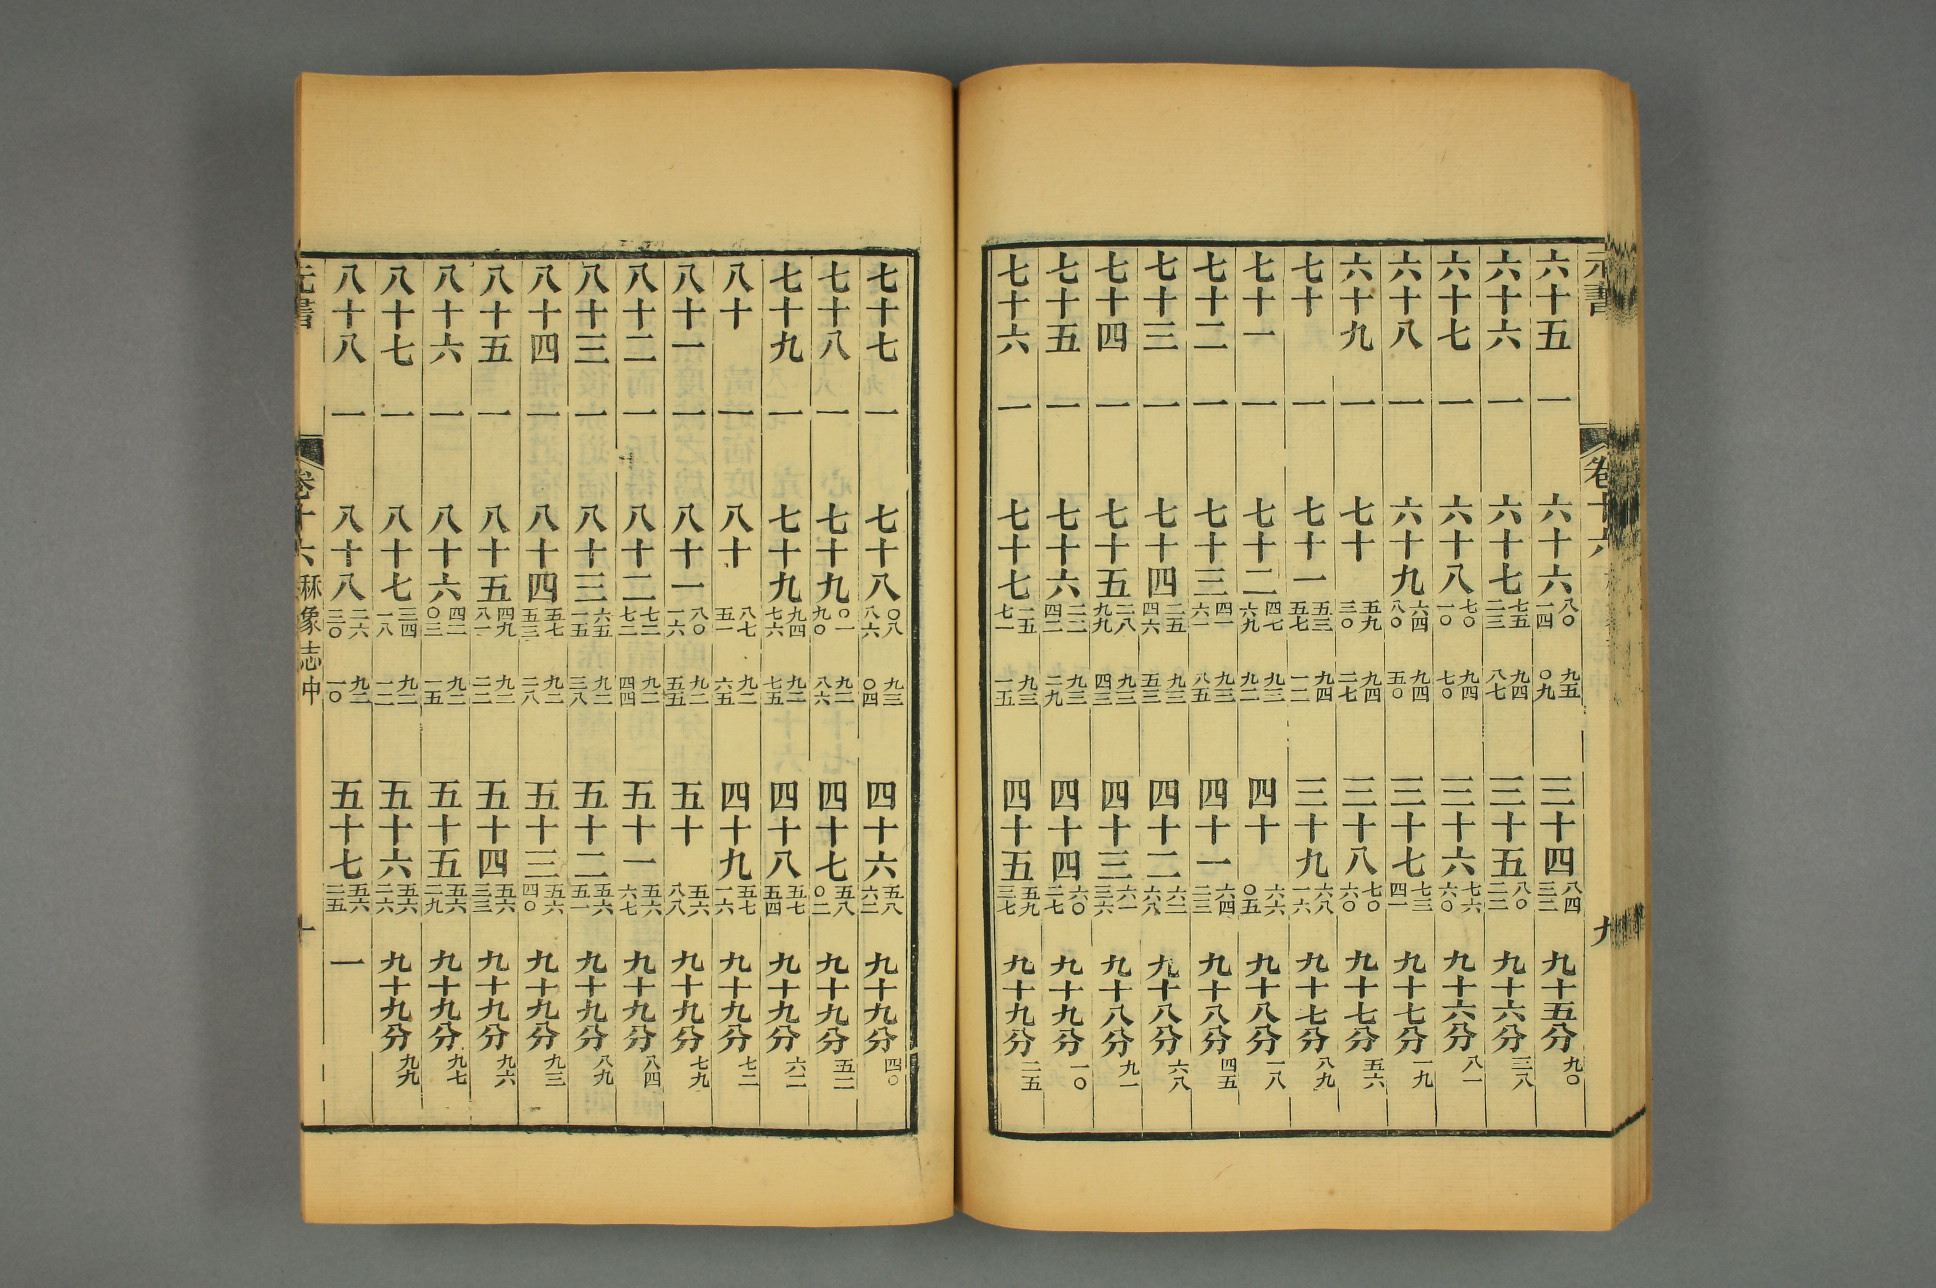 元書 卷十六 九
六十五 一 六十六八〇一四 九五〇九 三十四八四三二 九十五分九〇
六十六 一 六十七七五二三 九四八七 三十五八〇二二 九十六分三八
六十七 一 六十八七〇一〇 九四七〇 三十六七六六〇 九十六分八一
六十八 一 六十九六四八〇 九四五〇 三十七七三四一 九十七分一九
六十九 一 七十五九三〇 九四二七 三十八七〇六〇 九十七分五六
七十 一 七十一五三五七 九四一二 三十九六八一六 九十七分八九
七十一 一 七十二四七六九 九三九二 四十六六〇五 九十八分一八
七十二 一 七十三四一六一 九三八五 四十一六四二三 九十八分四五
七十三 一 七十四二五四六 九三五三 四十二六二六八 九十八分六八
七十四 一 七十五二八九九 九三四三 四十三六一三六 九十八分九一
七十五 一 七十六二二四二 九三二九 四十四六〇二七 九十九分一〇
七十六 一 七十七一五七一 九三一五 四十五五九三七 九十九分二五
七十七 一 七十八〇八八六 九三〇四 四十六五八六二 九十九分四〇
七十八 一 七十九〇一九〇 九二八六 四十七五八〇二 九十九分五二
七十九 一 七十九九四七六 九二七五 四十八五七五四 九十九分六二
八十 一 八十八七五一 九二六五 四十九五七一六 九十九分七二
八十一 一 八十一八〇一六 九二五五 五十五六八八 九十九分七九
八十二 一 八十二七二七二 九二四四 五十一五六六七 九十九分八四
八十三 一 八十三六五一五 九二三八 五十二五六五一 九十九分八九
八十四 一 八十四五七五三 九二二八 五十三五六四〇 九十九分九三
八十五 一 八十五四九八一 九二二二 五十四五六三三 九十九分九六
八十六 一 八十六四二〇三 九二一五 五十五五六二九 九十九分九七
八十七 一 八十七三四一八 九二一二 五十六五六二六 九十九分九九
八十八 一 八十八二六三〇 九二一〇 五十七五六二五 一
元書 卷十六 秝象志中